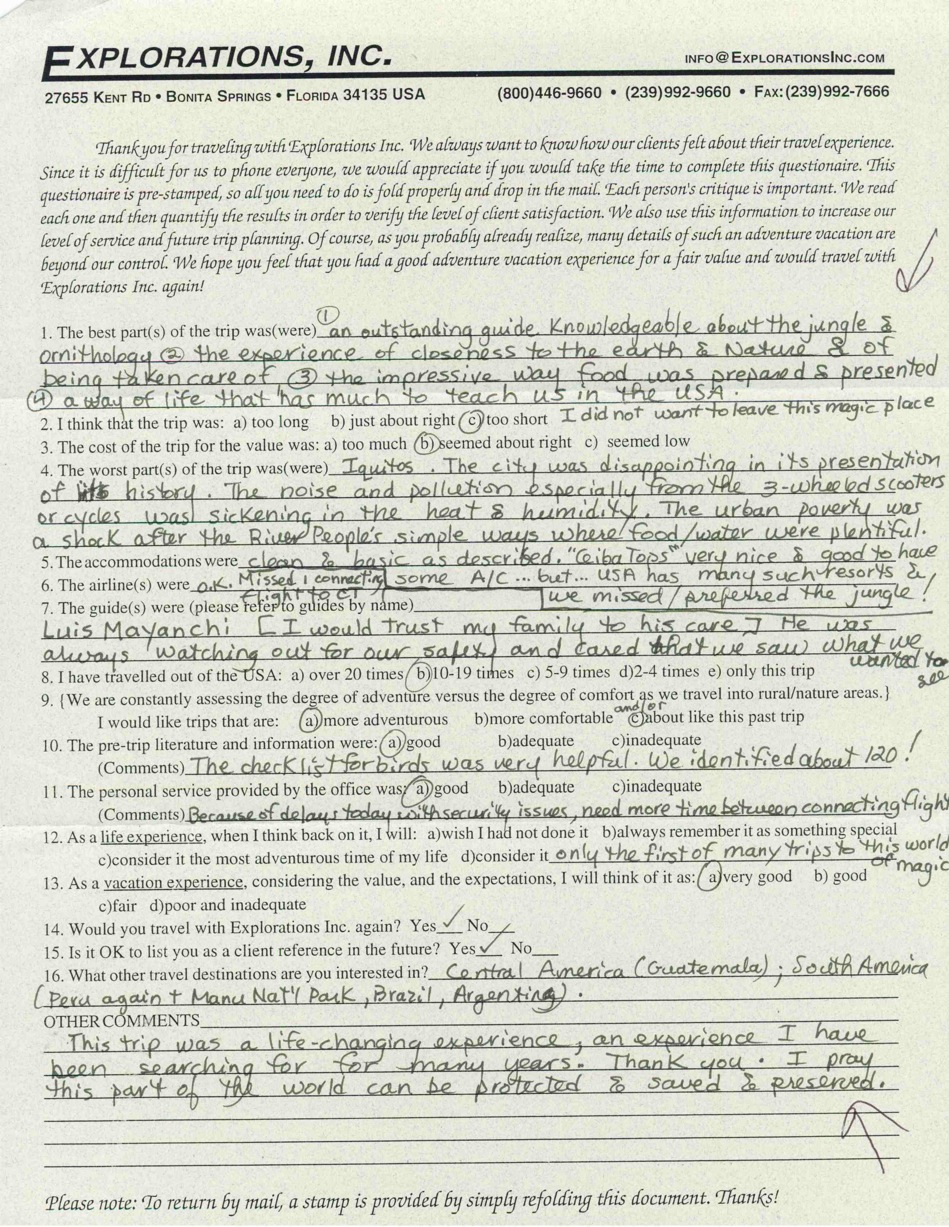 EXPLORATIONS, INC. INFO@EXPLORATIONSINC.COM
27655 KENT RD • BONITA SPRINGS • FLORIDA 34135 USA (800)446-9660 • (239)992-9660 • FAX:(239)992-7666
Thank you for traveling with Explorations Inc. We always want to know how our clients felt about their travel experience.
Since it is difficult for us to phone everyone, we would appreciate if you would take the time to complete this questionaire. This
questionaire is pre-stamped, so all you need to do is fold properly and drop in the mail. Each person's critique is important. We read
each one and then quantify the results in order to verify the level of client satisfaction. We also use this information to increase our
level of service and future trip planning. Of course, as you probably already realize, many details of such an adventure vacation are
beyond our control. We hope you feel that you had a good adventure vacation experience for a fair value and would travel with
Explorations Inc. again!
1. The best part(s) of the trip was(were) ① an outstanding guide. Knowledgeable about the jungle &
ornithology ② the experience of closeness to the earth & Nature & of
being taken care of, ③ the impressive way food was prepared & presented
④ a way of life that has much to teach us in the USA.
2. I think that the trip was: a) too long b) just about right c) too short I did not want to leave this magic place
3. The cost of the trip for the value was: a) too much b) seemed about right c) seemed low
4. The worst part(s) of the trip was(were) Iquitos. The city was disappointing in its presentation
of its history. The noise and pollution especially from the 3-wheeled scooters
or cycles was sickening in the heat & humidity. The urban poverty was
a shock after the River People's simple ways where food/water were plentiful.
5. The accommodations were clean & basic as described. "CeibaTops" very nice & good to have
6. The airline(s) were o.k. Missed 1 connecting flight to CT some A/C... but... USA has many such resorts &
7. The guide(s) were (please refer to guides by name) we missed/preferred the jungle!
Luis Mayanchi [I would trust my family to his care] He was
always watching out for our safety and cared that we saw what we
wanted to see
8. I have travelled out of the USA: a) over 20 times b)10-19 times c) 5-9 times d)2-4 times e) only this trip
9. {We are constantly assessing the degree of adventure versus the degree of comfort as we travel into rural/nature areas.}
I would like trips that are: a)more adventurous b)more comfortable and/or c)about like this past trip
10. The pre-trip literature and information were: a) good b)adequate c)inadequate
(Comments) The checklist for birds was very helpful. We identified about 120!
11. The personal service provided by the office was: a) good b)adequate c)inadequate
(Comments) Because of delays today with security issues, need more time between connecting flights
12. As a life experience, when I think back on it, I will: a)wish I had not done it b)always remember it as something special
c)consider it the most adventurous time of my life d)consider it only the first of many trips to this world of magic
13. As a vacation experience, considering the value, and the expectations, I will think of it as: a)very good b) good
c)fair d)poor and inadequate
14. Would you travel with Explorations Inc. again? Yes ✓ No
15. Is it OK to list you as a client reference in the future? Yes ✓ No
16. What other travel destinations are you interested in? Central America (Guatemala); South America
(Peru again + Manu Nat'l Park, Brazil, Argentina).
OTHER COMMENTS
This trip was a life-changing experience, an experience I have
been searching for for many years. Thank you. I pray
this part of the world can be protected & saved & preserved.
Please note: To return by mail, a stamp is provided by simply refolding this document. Thanks!